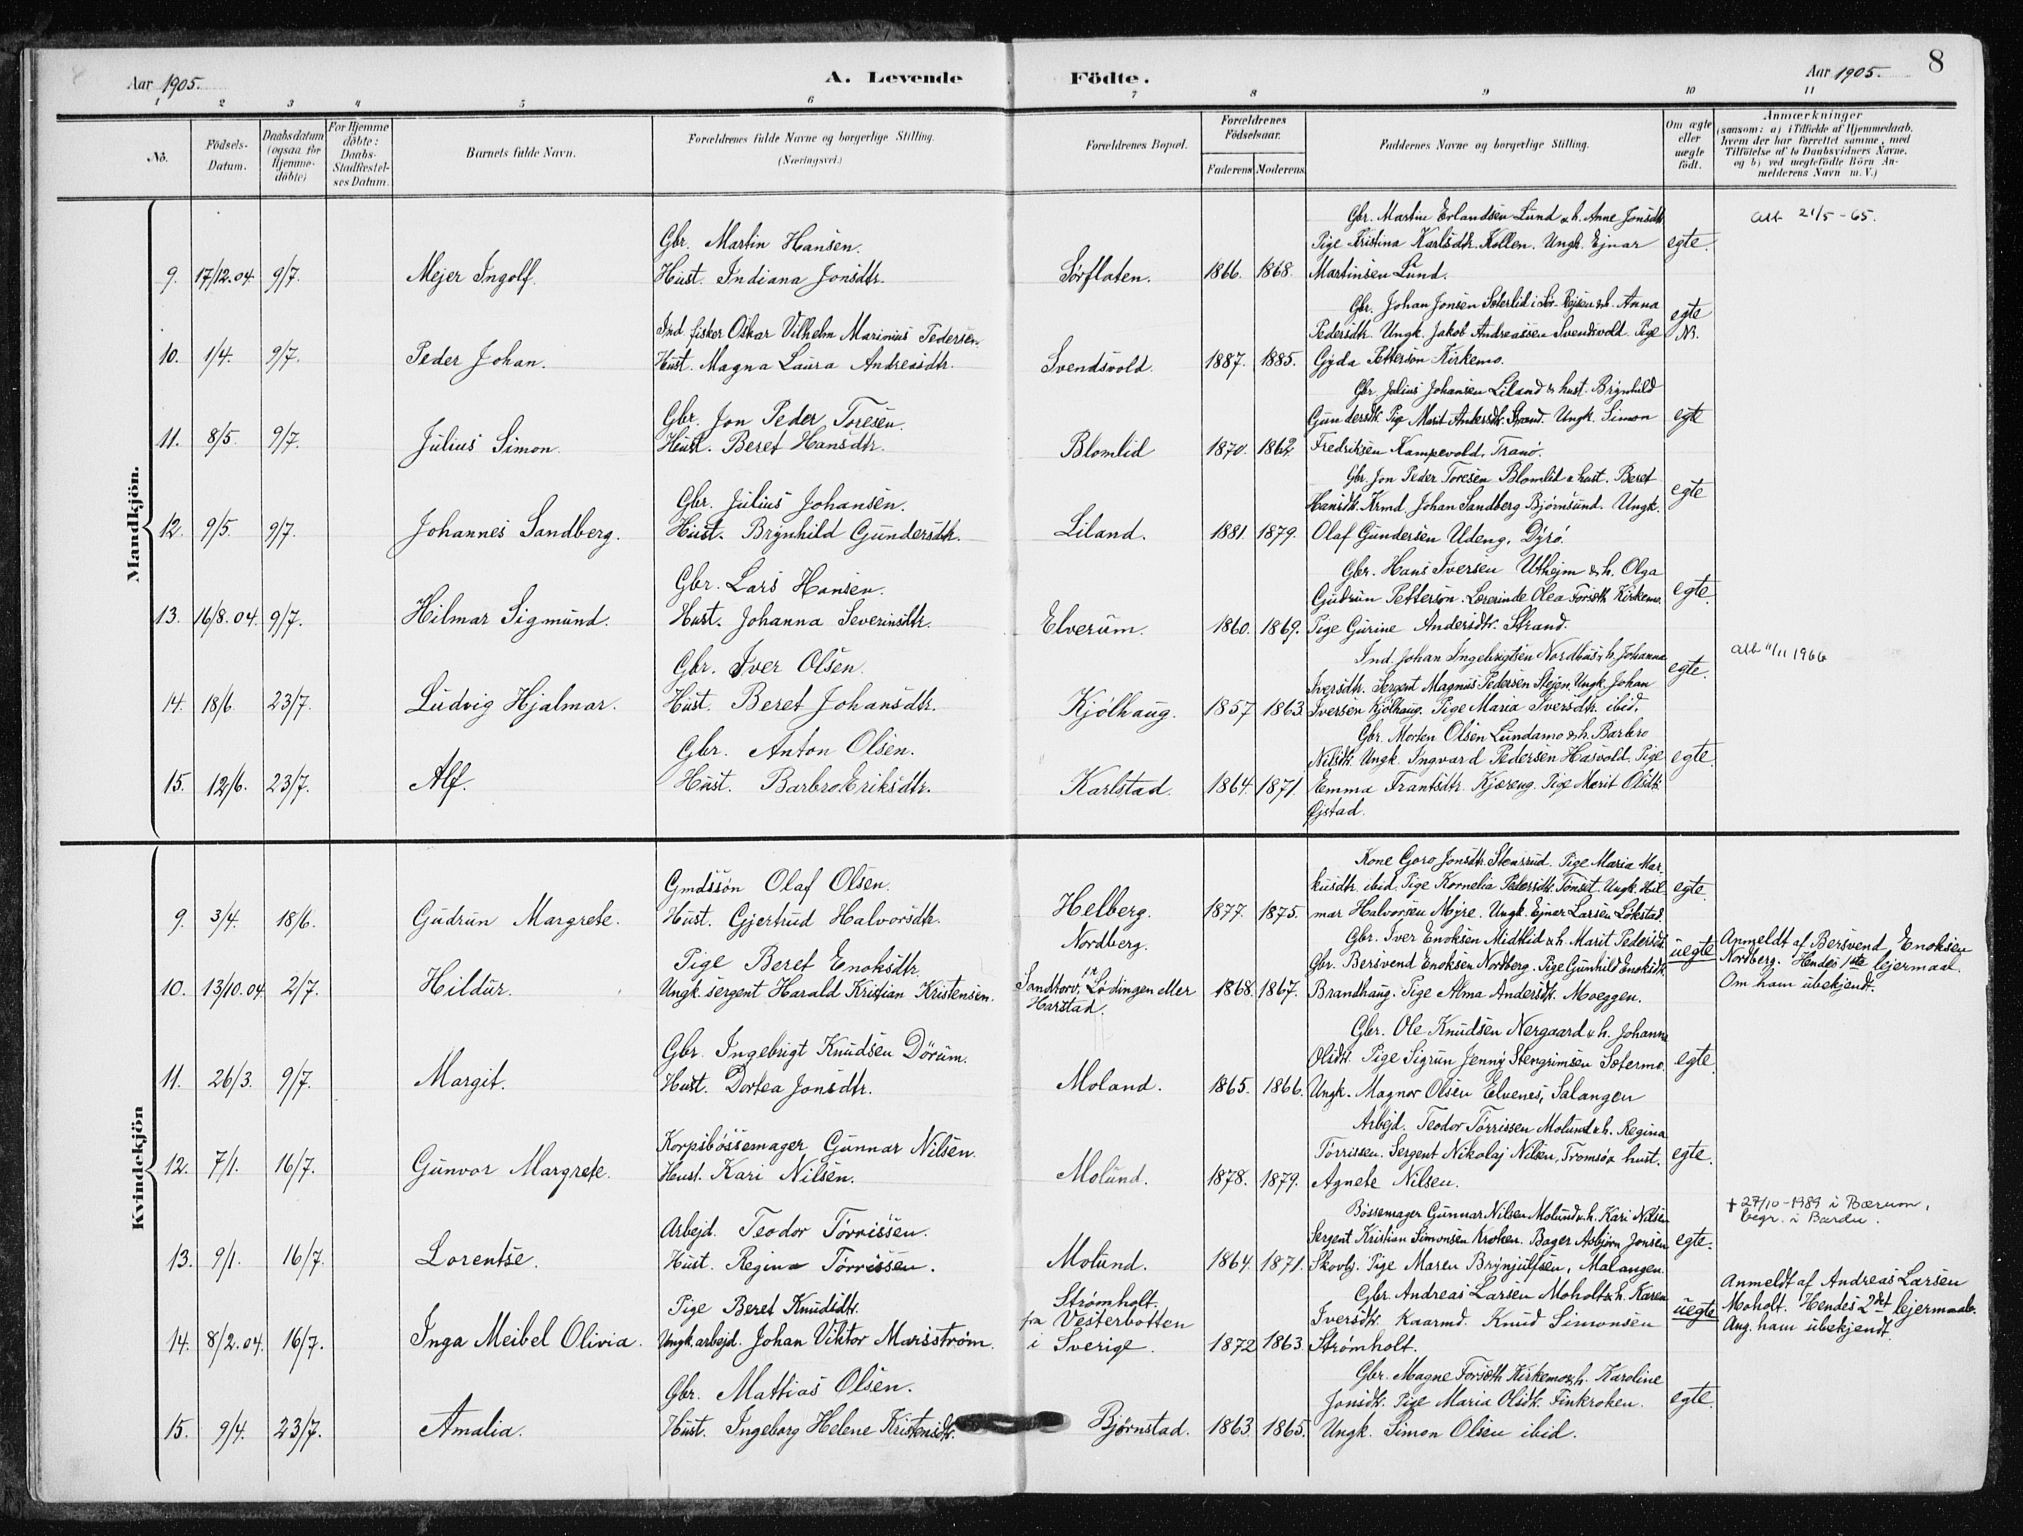 8
Aar 1905.
A. Levende Födte.
Aar 1905.
1 2 3 4 5 6 7 8 9 10 11
No.
Födsels-
Datum.
Daabsdatum
(ogsaa for
Hjemme-
döbte)
For Hjemme
döbte:
Daabs-
Stadfæstel-
ses Datum.
Barnets fulde Navn.
Forældrenes fulde Navne og borgerlige Stilling.
(Næringsvei.)
Forældrenes Bopæl.
Forældrenes
Födselsaar.
Faderens Moderens
Faddernes Navne og borgerlige Stilling.
Om ægte
eller
uægte
født.
Anmærkninger
(saasom: a) i Tilfælde af Hjemmedaab,
hvem der har forrettet samme, med
Tilföielse af to Daabsvidners Navne,
og b) ved uægtefödte Börn An-
melderens Navn m. V.)
Mandkjön.
9. 17/12.04. 9/7. Mejer Ingolf.
Gbr. Martin Hansen.
Hust. Indiana Jonsdtr.
Sørflaten. 1866. 1868.
Gbr. Martin Erlandsen Lund & h. Anne Jonsdtr
Pige Kristina Karlsdtr. Kollen. Ungk. Ejnar
Martinsen Lund.
egte.
Att 21/5-65.
10. 1/4. 9/7. Peder Johan.
Ind fisker Oskar Vilhelm Marinius Pedersen
Hust. Magna Laura Andreasdtr.
Svendsvold. 1887. 1885.
Gbr. Johan Jonsen Seterlid i Sør-Rejsen & h. Anna
Pedersdtr. Ungk. Jakob Andreassen Svendsvold. Pige
Gyda Petterson Kirkemo.
egte
11. 8/5. 9/7. Julius Simon.
Gbr. Jon Peder Toresen.
Hust. Beret Hansdtr.
Blomlid 1870. 1862.
Gbr Julius Johansen Liland & hust. Brynhild
Gundersdtr. Pige Marit Andersdtr. Strand. Ungk. Simon
Fredriksen Kampevold, Tranø.
egte
12. 9/5. 9/7. Johannes Sandberg.
Gbr. Julius Johansen.
Hust. Brynhild Gundersdtr.
Liland. 1881. 1879.
Gbr. Jon Peder Toresen Blomlid & hust. Beret
Hansdtr. Krmd Johan Sandberg Bjørnsund. Ungk.
Olaf Gundersen Udeng, Dyrø.
egte
13. 16/8.04. 9/7. Hilmar Sigmund.
Gbr. Lars Hansen.
Hust. Johanna Severinsdtr.
Elverum. 1860. 1869.
Gbr. Hans Iversen Uthejm & h. Olga
Gudrun Petterson. Lærerinde Olea Forseth Kirkemo.
Pige Gurine Andersdtr. Strand.
egte.
14. 18/6. 23/7. Ludvig Hjalmar.
Gbr. Iver Olsen.
Hust. Beret Johansdtr.
Kjølhaug. 1857 1863.
Ind. Johan Ingebrigtsen Nordhus & h. Johanna
Iversdtr. Sergent Magnus Pedersen Stejen. Ungk. Johan
Iversen Kjølhaug. Pige Maria Iversdtr. ibid.
egte.
att 11/11 1966
15. 12/6. 23/7. Alf.
Gbr. Anton Olsen.
Hust. Barbro Eriksdtr.
Karlstad. 1864. 1871.
Gbr. Morten Olsen Lundamo & h. Barbro
Nilsdtr. Ungk. Ingvard Pedersen Hasvold. Pige
Emma Frantsdtr. Kjæreng. Pige Marit Olsdtr.
Øjstad.
egte.
Kvindekjön
9. 3/4. 18/6. Gudrun Margrete.
Gmdssøn Olaf Olsen.
Hust. Gjertrud Halvorsdtr.
Helberg. 1877. 1875.
Kone Goro Jonsdtr. Stensrud. Pige Maria Mar-
kusdtr. ibid. Pige Kornelia Pedersdtr. Tønset. Ungk. Hil-
mar Halvorsen Myre. Ungk. Ejnar Larsen Løkstad.
egte.
10. 13/10.04. 2/7. Hildur.
Pige Beret Enoksdtr.
Ungk. sergent Harald Kristian Kristensen.
Nordberg.
Sandtorv, Lødingen eller
Harstad.
1868. 1867.
Gbr. Iver Enoksen Midtlid & h. Marit Pedersdtr.
Gbr. Bersvend Enoksen Nordberg. Pige Gunhild Enoksdtr
Brandhaug. Pige Alma Andersdtr. Moeggen.
uegte
Anmeldt af Bersvend Enoksen
Nordberg. Hendes 1ste lejermaal.
Om ham ubekjendt.
11. 26/3. 9/7. Margit.
Gbr. Ingebrigt Knudsen Dørum.
Hust. Dortea Jonsdtr.
Moland. 1865. 1866.
Gbr. Ole Knudsen Nergaard & h. Johanne
Olsdtr. Pige Sigrun Jenny Stengrimsen Setermo.
Ungk. Magnor Olsen Elvenes, Salangen
egte.
12. 7/1. 16/7. Gunvor Margrete.
Korpsbøssemager Gunnar Nilsen.
Hust. Kari Nilsen.
Molund. 1878. 1879.
Arbejd. Teodor Tørrissen Molund & h. Regina
Tørrissen. Sergent Nikolaj Nilsen, Tromsø & hust.
Agnete Nilsen.
egte.
13. 9/1. 16/7. Lorentse.
Arbejd. Teodor Tørrissen.
Hust. Regina Tørrissen.
Molund. 1864. 1871.
Bøssemager Gunnar Nilsen Molund & h. Kari Nilsen
Sergent Kristian Simonsen Kroken. Bager Asbjørn Jonsen
Skovlj. Pige Maren Brynjulfsen, Malangen.
egte.
+ 27/10-1989 i Bærum,
begr. i Bardu.
14. 8/2.04. 16/7. Inga Meibel Olivia.
Pige Beret Knudsdtr.
Ungk. arbejd. Johan Viktor Marsström.
Strømholt.
fra Vesterbotten
i Sverige.
1872 1863.
Gbr. Andreas Larsen Moholt & h. Karen
Iversdtr. Kaarmd. Knud Simonsen
Strømholt.
uegte
Anmeldt af Andreas Larsen
Moholt. Hendes 2det lejermaal.
Ang. ham ubekjendt.
15. 9/4. 23/7. Amalia.
Gbr. Mattias Olsen.
Hust. Ingeborg Helene Kristensdtr.
Bjørnstad. 1863. 1865.
Gbr. Magne Forseth Kirkemo & h. Karoline
Jonsdtr. Pige Maria Olsdtr. Finkroken.
Ungk. Simon Olsen ibid.
egte.